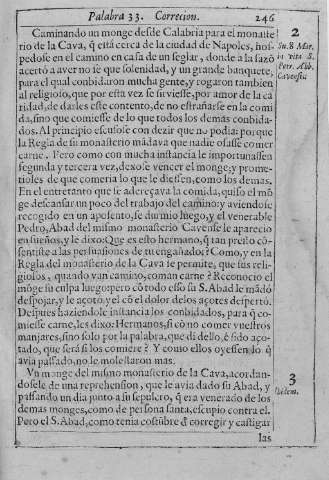 Palabra 33. Correcion. 246
Caminando un monge desde Calabria para el monaste
rio de la Cava, q̃ està cerca de la ciudad de Napoles, hos-
pedose en el camino en casa de un seglar, donde a la sazõ
acertò a aver no sè que solenidad, y un grande banquete,
para el qual conbidaron mucha gente, y rogaron tambien
al religioso, que por esta vez se sirviesse, por amor de la ca
ridad, de darles este contento, de no estrañarse en la comi
da, sino que comiesse de lo que todos los demas conbida-
dos. Al principio escusose con dezir que no podia: porque
la Regla de su monasterio mãdava que nadie osasse comer
carne. Pero como con mucha instancia le importunassen
segunda y tercera vez, dexose vencer el monge; y prome-
tioles de que comeria lo que le diessen, como los demas.
En el entretanto que se adereçava la comida, quiso el mõ
ge descansar un poco del trabajo del camino; y aviendose
recogido en un aposento, se durmio luego, y el venerable
Pedro, Abad del mismo monasterio Cavense le aparecio
en sueños, y le dixo: Que es esto hermano, q̃ tan presto cõ-
sentiste a las persuasiones de tu engañador? Como, y en la
Regla del monasterio de la Cava se permite, que sus reli-
giosos, quando van camino, coman carne? Reconocio el
mõge su culpa luego: pero cõ todo esso su S. Abad le mãdò
despojar, y le açotò, y el cõ el dolor de los açotes despertò.
Despues haziendole instancia los conbidados, para q̃ co-
miesse carne, les dixo: Hermanos, si cõ no comer vuestros
manjares, sino solo por la palabra, que di dello, è sido aço-
tado, que serà si los comiere? Y como ellos oyessen lo q̃
avia passado, no le molestaron mas.
Un monge del mismo monasterio de la Cava, acordan-
dosele de una reprehension, que le avia dado su Abad, y
passando un dia junto a su sepulcro, q̃ era venerado de los
demas monges, como de persona santa, escupio contra el.
Pero el S. Abad, como tenia costũbre de corregir y castigar
las
2
Su. 8 Mar.
in vita S.
Petr. Abb.
Cavensis
3
Ibidem.